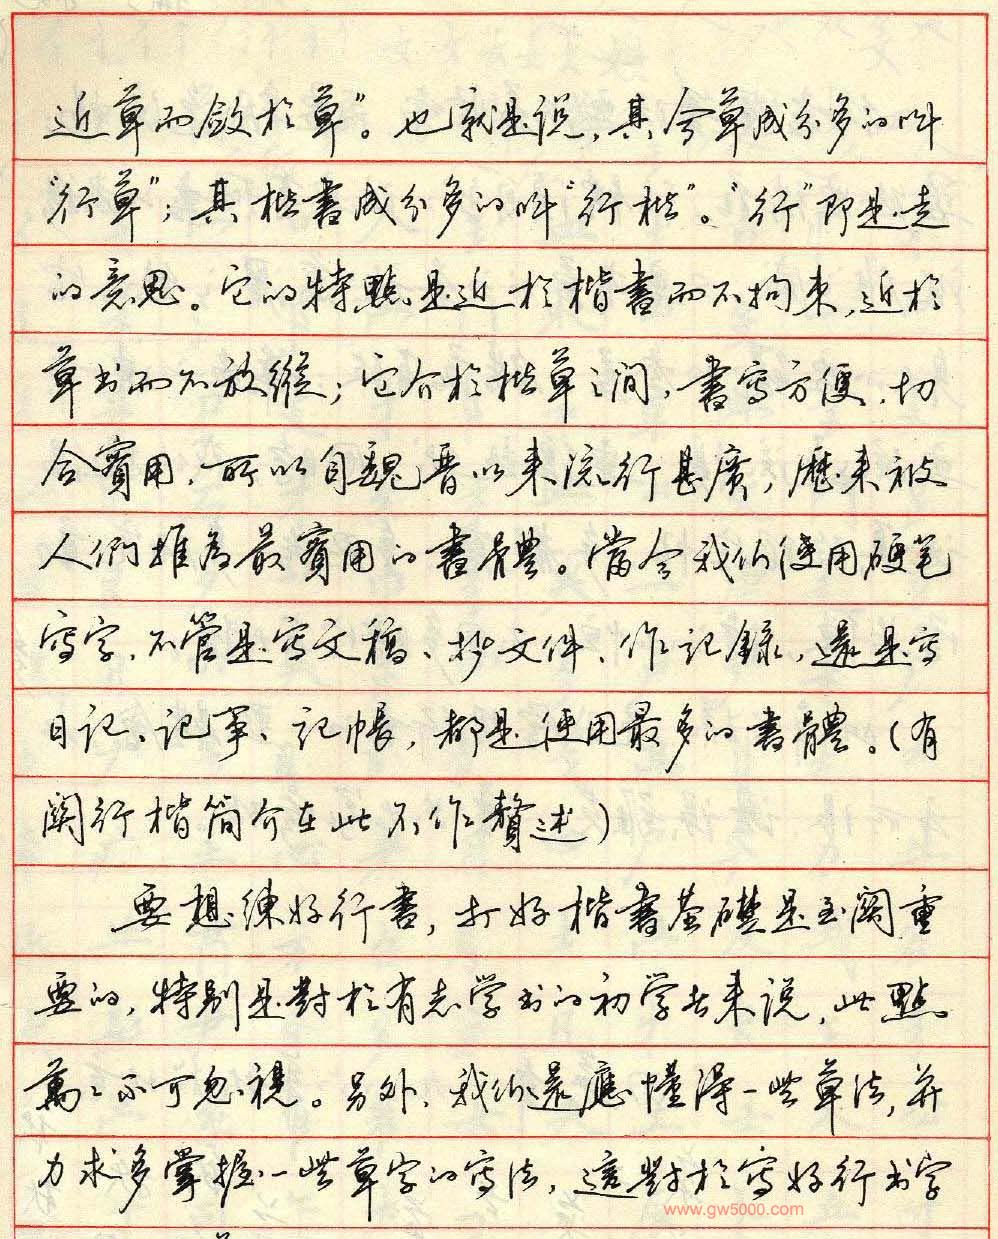 近草而斂於草”。也就是说，其今草成分多的叫
“行草”；其楷書成分多的叫“行楷”。“行”即是走
的意思。它的特點是近於楷書而不拘束，近於
草书而不放縱；它介於楷草之间，書寫方便，切
合實用，所以自魏晋以来流行甚廣，歷来被
人們推為最實用的書體。當今我们使用硬笔
寫字，不管是寫文稿、抄文件、作記錄，還是寫
日記、記事、記帳，都是使用最多的書體。（有
関行楷简介在此不作贅述）
要想練好行書，打好楷書基礎是至関重
要的，特别是對於有志学书的初学者来说，此點
萬萬不可忽視。另外，我们還應懂得一些草法，并
力求多掌握一些草字的寫法，這對於寫好行书字
www.gw5000.com